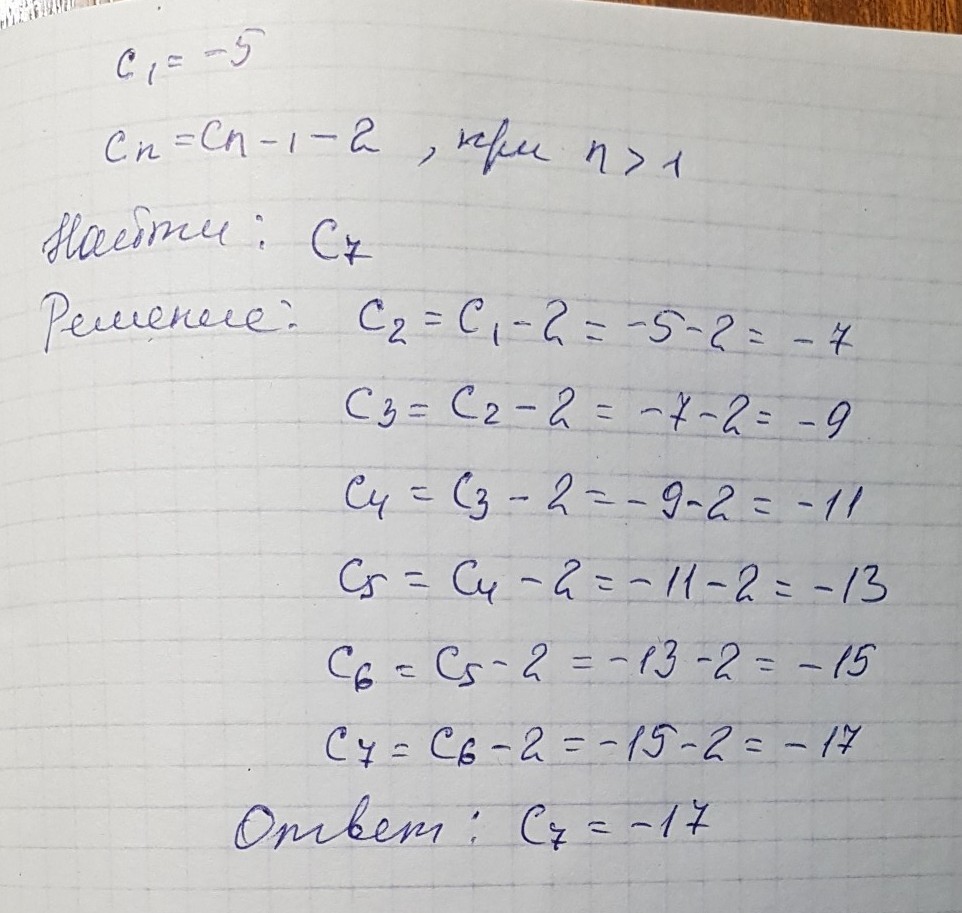 c₁ = -5
cn = cn-1 - 2 , при n > 1
Найти: c₇
Решение: c₂ = c₁ - 2 = -5 - 2 = -7
c₃ = c₂ - 2 = -7 - 2 = -9
c₄ = c₃ - 2 = -9 - 2 = -11
c₅ = c₄ - 2 = -11 - 2 = -13
c₆ = c₅ - 2 = -13 - 2 = -15
c₇ = c₆ - 2 = -15 - 2 = -17
Ответ: c₇ = -17